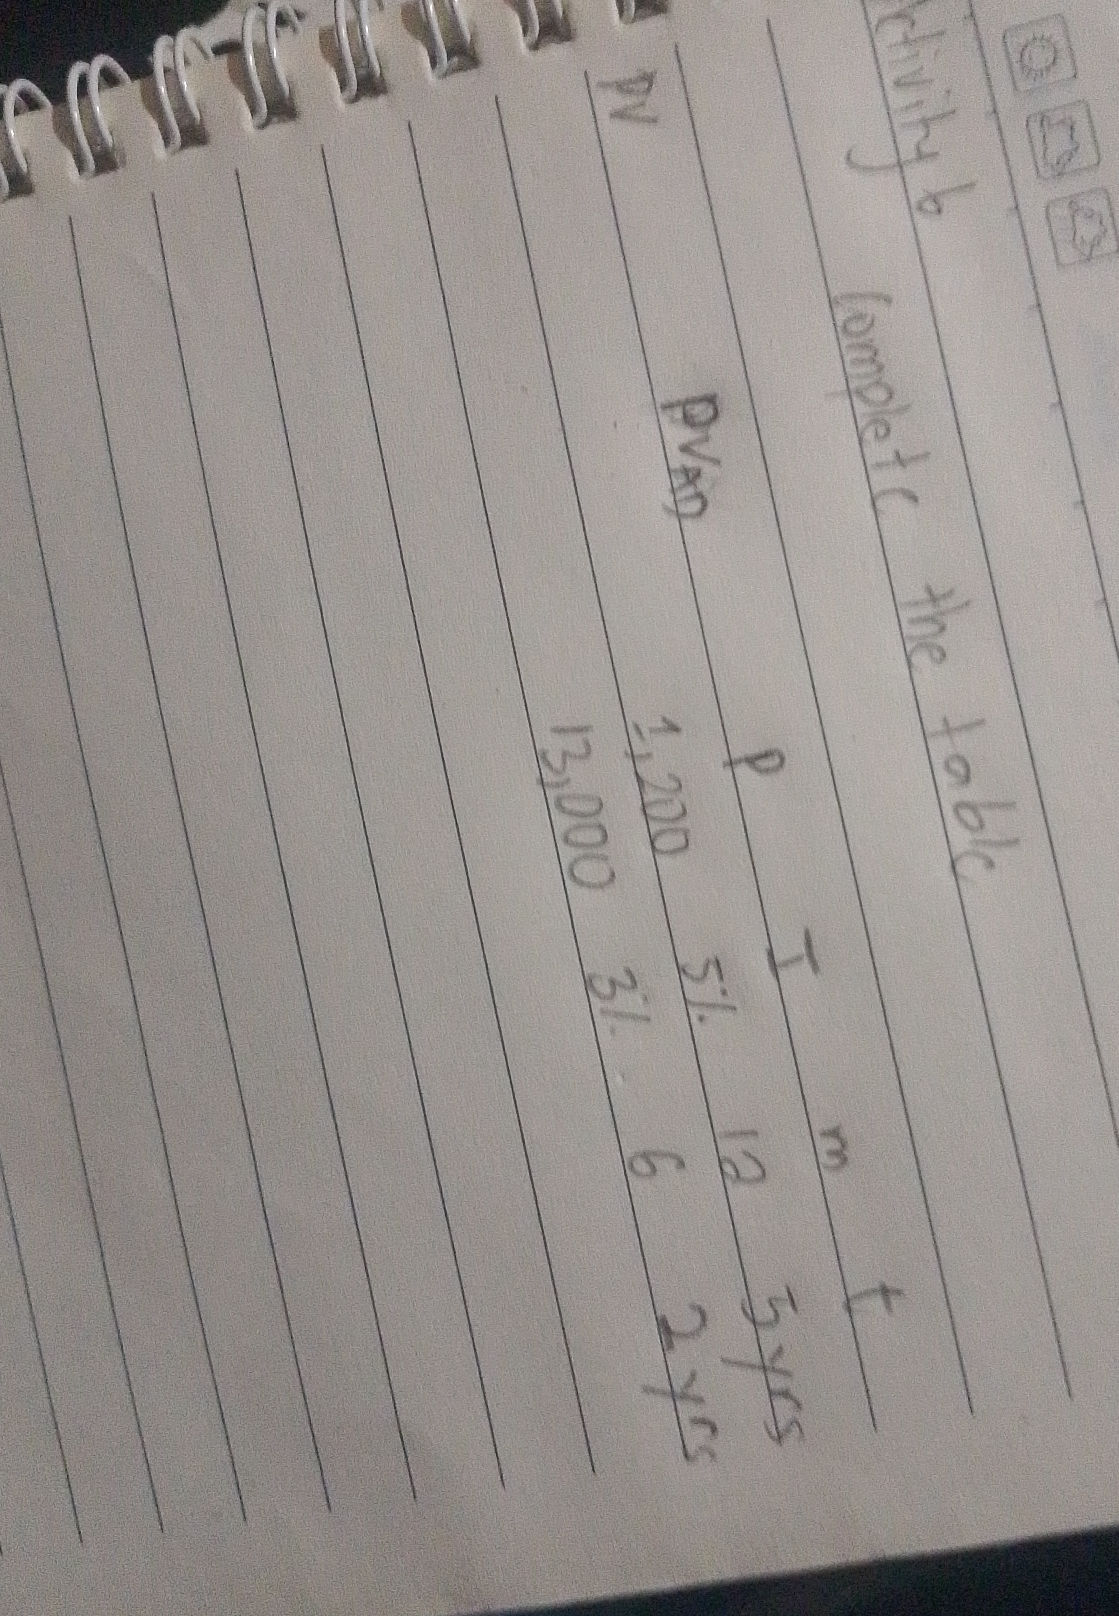 Activity 6
Complete the table
PV PVAD P I m t
1,200 5% 12 5 yrs
13,000 3% 6 2 yrs